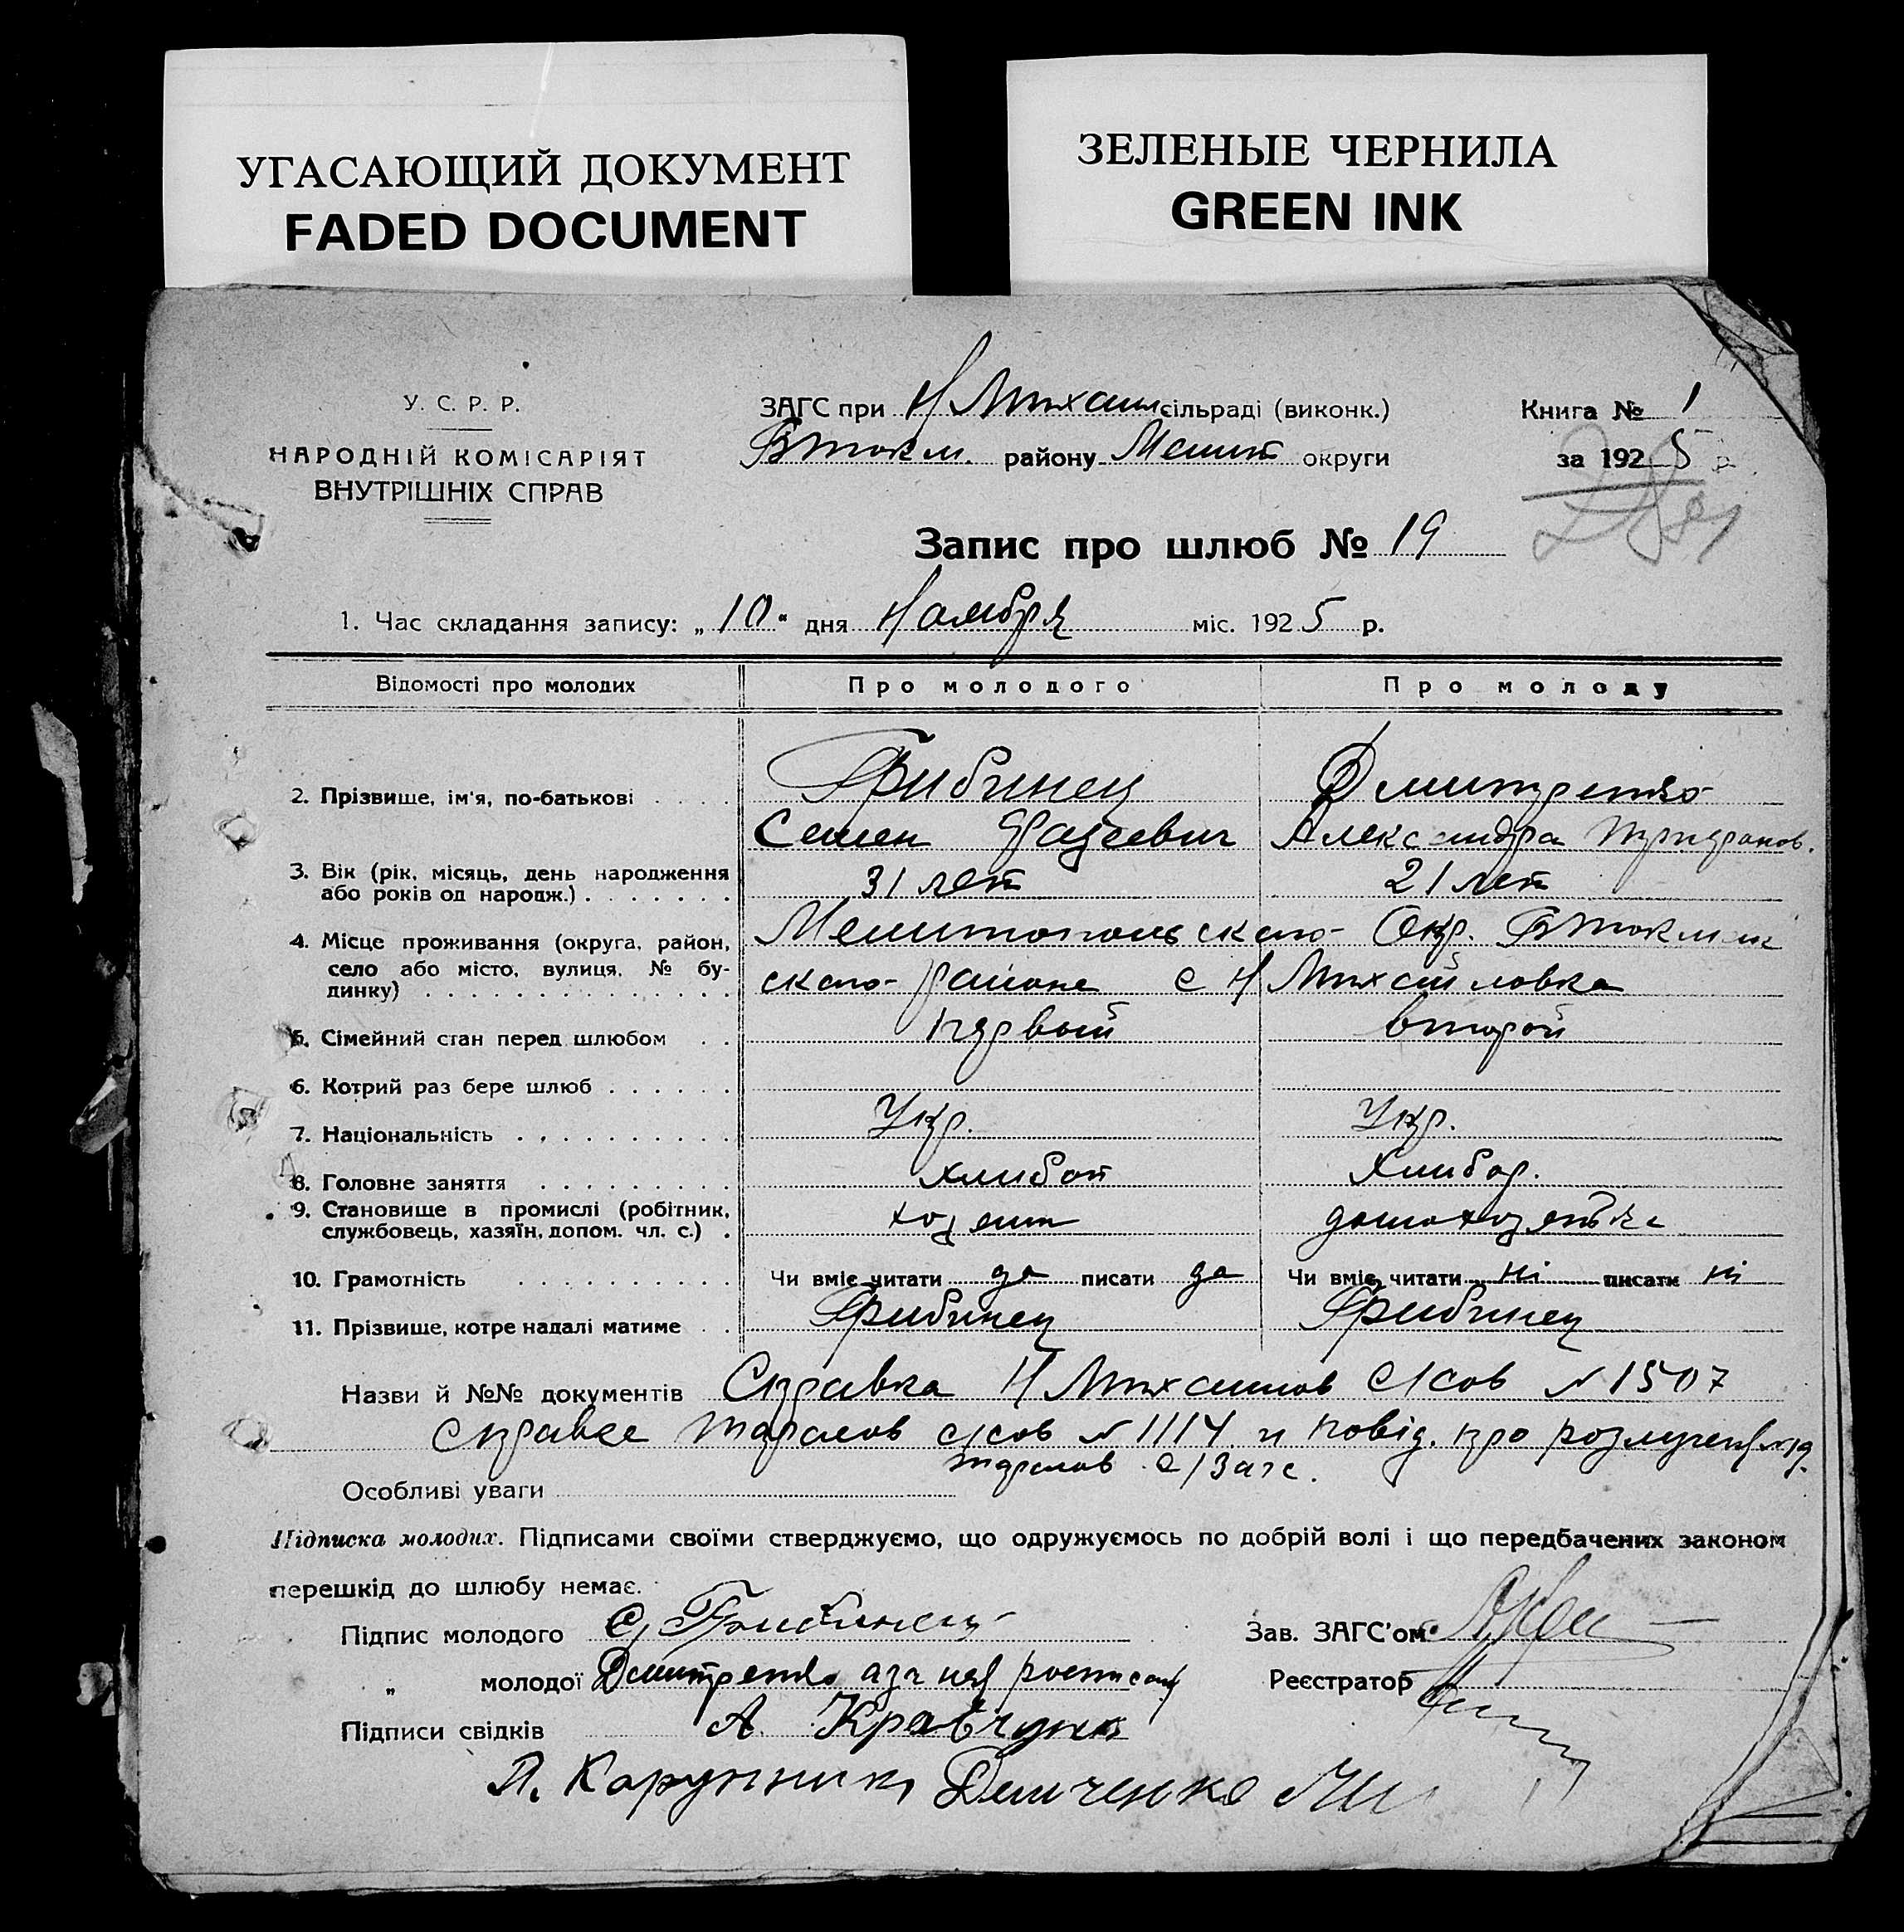 УГАСАЮЩИЙ ДОКУМЕНТ
FADED DOCUMENT
ЗЕЛЕНЫЕ ЧЕРНИЛА
GREEN INK
У. С. Р. Р.
НАРОДНІЙ КОМІСАРІЯТ
ВНУТРІШНІХ СПРАВ
ЗАГС при Н Михаил сільраді (виконк.)
ВТокм. району Мелит округи
Книга № 1
за 1925 р.
Запис про шлюб № 19
1. Час складання запису: „10“ дня Ноября міс. 1925 р.
Відомості про молодих Про молодого Про молоду
2. Прізвище, ім'я, по-батькові . . . . Грибинец Дмитренко
Семен Фадеевич Александра
3. Вік (рік, місяць, день народження
або років од народж.) . . . . . . . 31 лет 21 лет
4. Місце проживання (округа, район, Мелитопольского Окр. ВТокмак
село або місто, вулиця, № бу-
динку) . . . . . . . . . . . . . . ского района с Н Михайловка
5. Сімейний стан перед шлюбом . . первый второй
6. Котрий раз бере шлюб . . . . . .
7. Національність . . . . . . . . . . Укр. Укр.
8. Головне заняття . . . . . . . . . Хлибор.
9. Становище в промислі (робітник,
службовець, хазяїн, допом. чл. с.) .
10. Грамотність . . . . . . . . . . Чи вміє читати да писати да Чи вміє читати ні писати ні
11. Прізвище, котре надалі матиме . . Грибинец Грибинец
Назви й №№ документів Справка Н Михайлов С/сов №1507
справка с/сов №1114 и повід. про
с/Загс.
Особливі уваги
Підписка молодих. Підписами своїми стверджуємо, що одружуємось по добрій волі і що передбачених законом
перешкід до шлюбу немає.
Підпис молодого С. Грибинец
Зав. ЗАГС'ом
„ молодої Дмитренко
Реєстратор
Підписи свідків А Кравчуна
Демченко